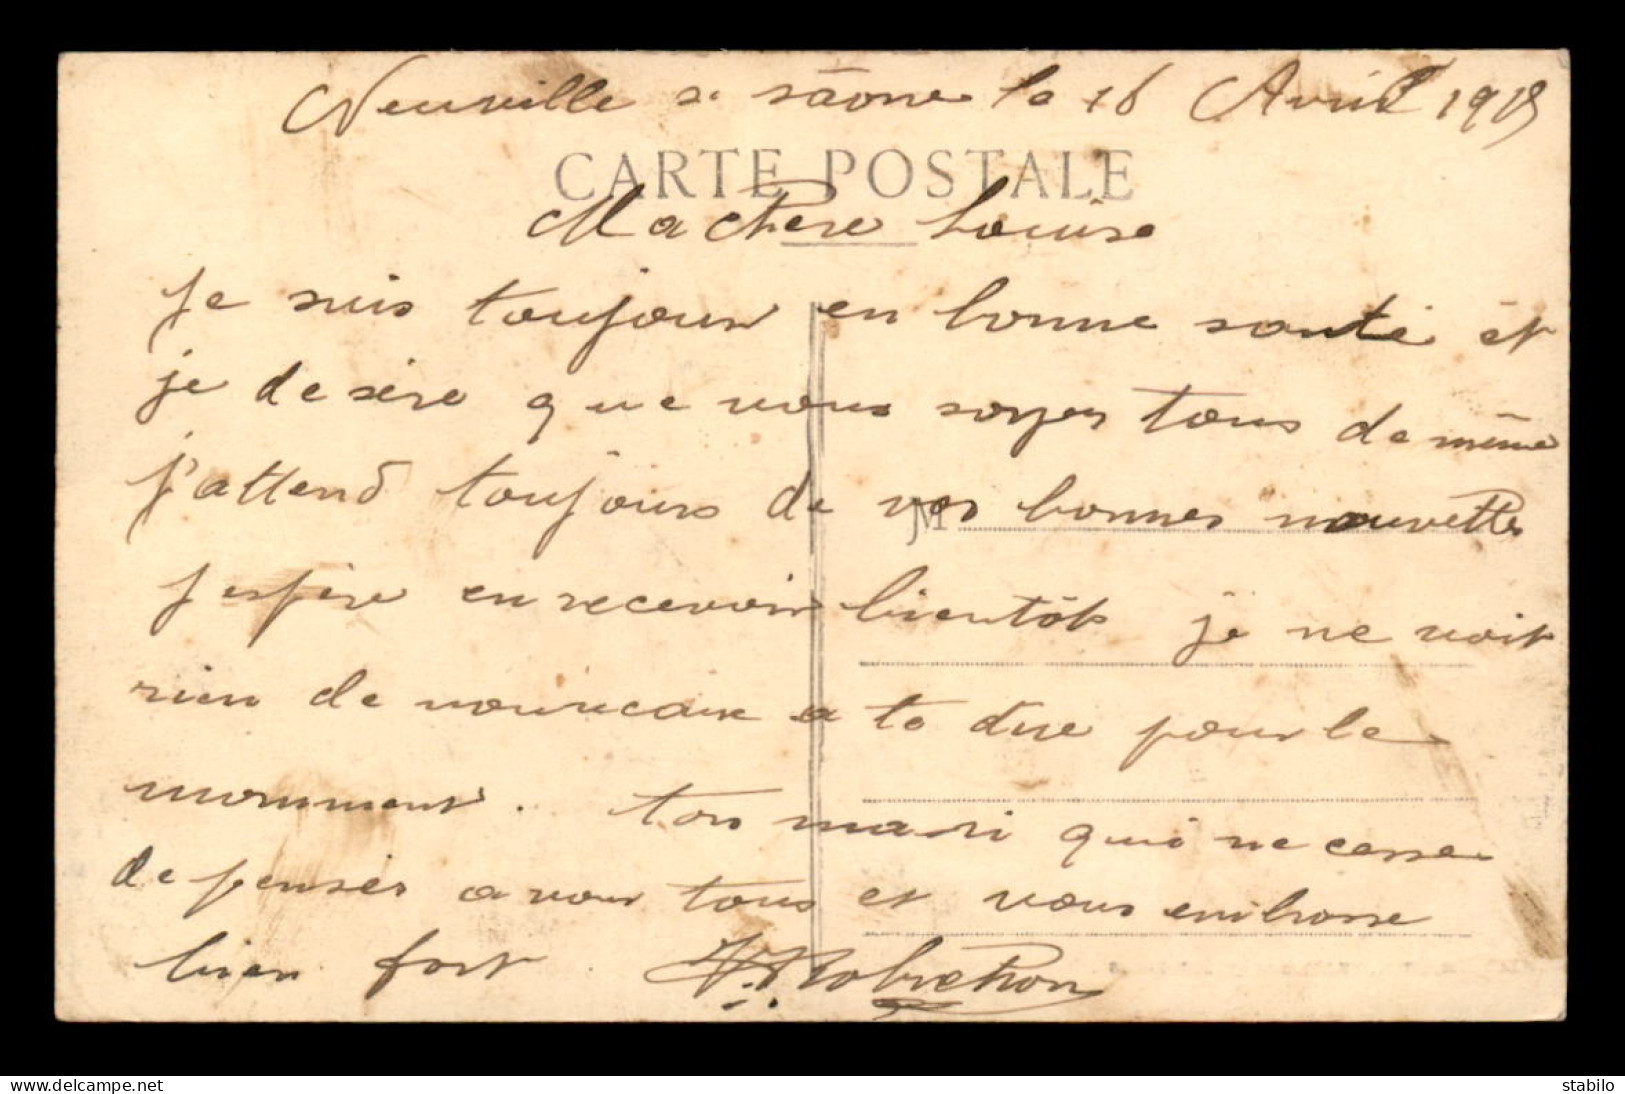 Neuville s. sâone le 16 Avril 1915
CARTE POSTALE
Ma chere Louise
Je suis toujour en bonne santé et
je desire que vous soyer tous de même
j'attend toujours de vos bonnes nouvelles
M
j espère en recevoir bientôt je ne voit
rien de nouveaux a te dire pour le
momment. ton mari qui ne cesse
de penser a vous tous et vous embrasse
bien fort.
delcampe.net
stabilo